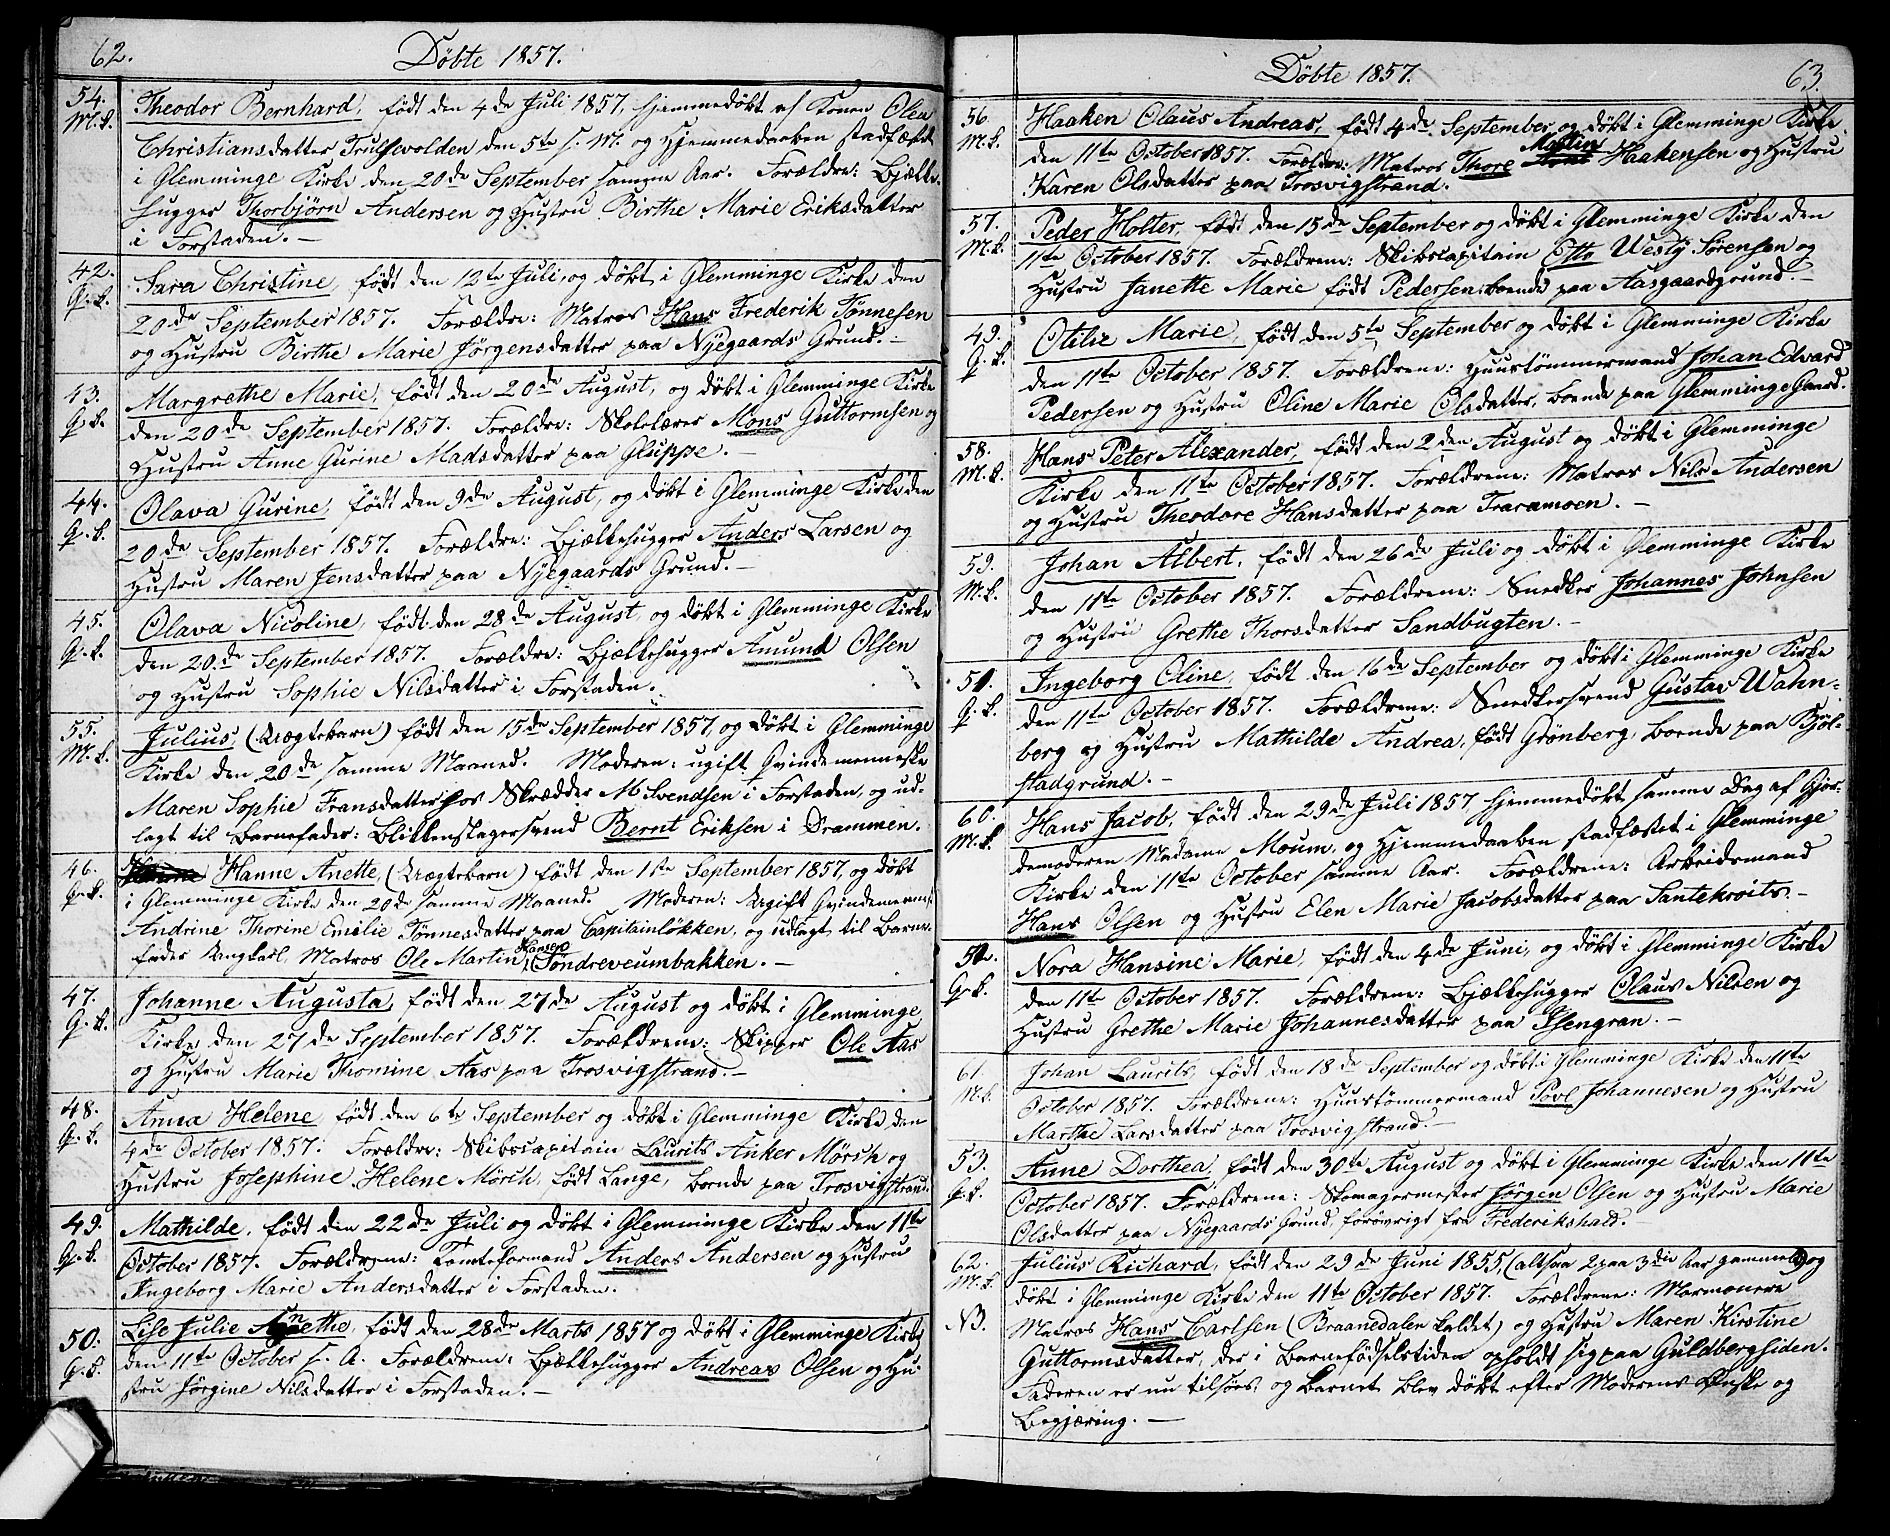 62.
Döbte 1857.
54.
M.k.
Theodor Bernhard, født den 4de Juli 1857, hjemmedøbt af Konen Olea
Christiansdatter Trulsevolden den 5te s. M. og Hjemmedaaben stadfæstet
i Glemminge Kirke den 20de September samme Aar. Forældre: Bjælke-
hugger Thorbjørn Andersen og Hustru Birthe Marie Eriksdatter
i Forstaden. –
42.
Q.k.
Sara Christine, født den 12te Juli, og døbt i Glemminge Kirke den
20de September 1857. Forældre: Matros Hans Frederik Tönnesen
og Hustru Birthe Marie Jörgensdatter paa Nyegaards Grund. –
43.
Q.k.
Margrethe Marie, født den 20de August, og døbt i Glemminge Kirke
den 20de September 1857. Forældre: Skolelærer Mons Guttormsen og
Hustru Anne Gurine Madsdatter paa Gluppe. –
44.
Q.k.
Olava Gurine, født den 9de August, og døbt i Glemminge Kirke den
20de September 1857. Forældre: Bjælkehugger Anders Larsen og
Hustru Maren Jensdatter paa Nyegaards Grund. –
45.
Q.k.
Olava Nicoline, født den 28de August, og døbt i Glemminge Kirke
den 20de September 1857. Forældre: Bjælkehugger Amund Olsen
og Hustru Sophie Nilsdatter i Forstaden.
55.
M.k.
Julius, (Uægtebarn) født den 15de September 1857, og døbt i Glemminge
Kirke den 20de samme Maaned. Moderen: ugift Qvindemenneske
Maren Sophie Fransdatter hos Skrædder M Svendsen i Forstaden, og ud-
lagt til Barnefader: Blikkenslagersvend Bernt Eriksen i Drammen.
46.
Q.k.
Hanne Anette, (Uægtebarn) født den 1ste September 1857, og døbt
i Glemminge Kirke den 20de samme Maaned. Moderen: Ugift Qvindemenns.
Andrine Thorine Emilie Tönnesdatter paa Capitainløkken, og udlagt til Barne-
fader Ungkarl, Matros Ole Martin Hansen Söndreveumbakken. –
47.
Q.k.
Johanne Augusta, født den 27de August og døbt i Glemminge
Kirke den 27de September 1857. Forældrene: Skipper Ole Aas
og Hustru Marie Thomine Aas paa Trosvigstrand. –
48.
Q.k.
Anna Helene, født den 6te September og døbt i Glemminge Kirke den
4de October 1857. Forældre: Skibscapitain Laurits Anker Mörch og
Hustru Josephine Helene Mörch, født Lange, boende paa Trosvigstrand.
49.
Q.k.
Mathilde, født den 22de Juli og døbt i Glemminge Kirke den 11te
October 1857. Forældrene: Tomteformand Anders Andersen og Hustru
Ingeborg Marie Andersdatter i Forstaden.
50.
Q.k.
Lise Julie Annethe, født den 28de Marts 1857 og døbt i Glemminge Kirke
den 11te October s. A. Forældrene: Bjælkehugger Andreas Olsen og Hu-
stru Jörgine Nilsdatter i Forstaden. –
Döbte 1857.
63.
56.
M.k.
Haaken Olaus Andreas, født 4de September og døbt i Glemminge Kirke
den 11te October 1857. Forældre: Matros Thore Martin Haakensen og Hustru
Karen Olsdatter paa Trosvigstrand.
57.
M.k.
Peder Holter, født den 15de September og døbt i Glemminge Kirke den
11te October 1857. Forældrene: Skibscapitain Otto Westy Sørensen og
Hustru Janette Marie født Pedersen, boende paa Aasgaardsgrund –
49.
Q.k.
Otilie Marie, født den 5te September og døbt i Glemminge Kirke
den 11te October 1857. Forældrene: Huustömmermand Johan Edvard
Pedersen og Hustru Oline Marie Olsdatter, boende paa Glemminge Gaard.
58.
M.k.
Hans Peter Alexander, født den 2den August og døbt i Glemminge
Kirke den 11te October 1857. Forældrene: Matros Nils Andersen
og Hustru Theodore Hansdatter paa Traramoen. –
59.
M.k.
Johan Albert, født den 26de Juli og døbt i Glemminge Kirke
den 11te October 1857. Forældrene: Snedker Johannes Johnsen
og Hustru Grethe Thorsdatter Sandbugten. –
51.
Q.k.
Ingeborg Oline, født den 16de September og døbt i Glemminge Kirke
den 11te October 1857. Forældrene: Snedkersvend Gustav Wahn-
berg og Hustru Mathilde Andrea, født Grønberg, boende paa Kjöl-
stadgrund. –
60.
M.k.
Hans Jacob, født den 29de Juli 1857, hjemmedøbt samme Dag af Gjør-
demoderen Madame Moum, og Hjemmedaaben stadfæstet i Glemminge
Kirke den 11te October samme Aar. Forældrene: Arbeidsmand
Hans Olsen og Hustru Elen Marie Jacobsdatter paa Santekroits. –
52.
Q.k.
Nora Hansine Marie, født den 4de Juni, og døbt i Glemminge Kirke
den 11te October 1857. Forældrene: Bjælkehugger Olaus Nilsen og
Hustru Grethe Marie Johannesdatter paa Isengran. –
61.
M.k.
Johan Laurits, født den 18de September og døbt i Glemminge Kirke den 11te
October 1857. Forældrene: Huustömmermand Povl Johannesen og Hustru
Marthe Larsdatter paa Trosvigstrand. –
53.
Q.k.
Anne Dorthea, født den 30te August og døbt i Glemminge Kirke den 11te
October 1857. Forældrene: Skomagermester Jörgen Olsen og Hustru Marie
Olsdatter paa Nyegaards Grund, forøvrigt fra Frederikshald. –
62.
M.k.
NB.
Julius Richard, født den 29de Juni 1855, (altsaa 2 paa 3die Aar gammel) og
døbt i Glemminge Kirke den 11te October 1857. Forældrene: Marmonere
Matros Hans Carlsen (Braanedalen kaldet) og Hustru Maren Kirstine
Guttormsdatter, der i Barnefödselstiden opholdt sig paa Guldbergsiden.
Faderen er nu tilsøes, og Barnet blev døbt efter Moderens Ønske og
Begjæring. –